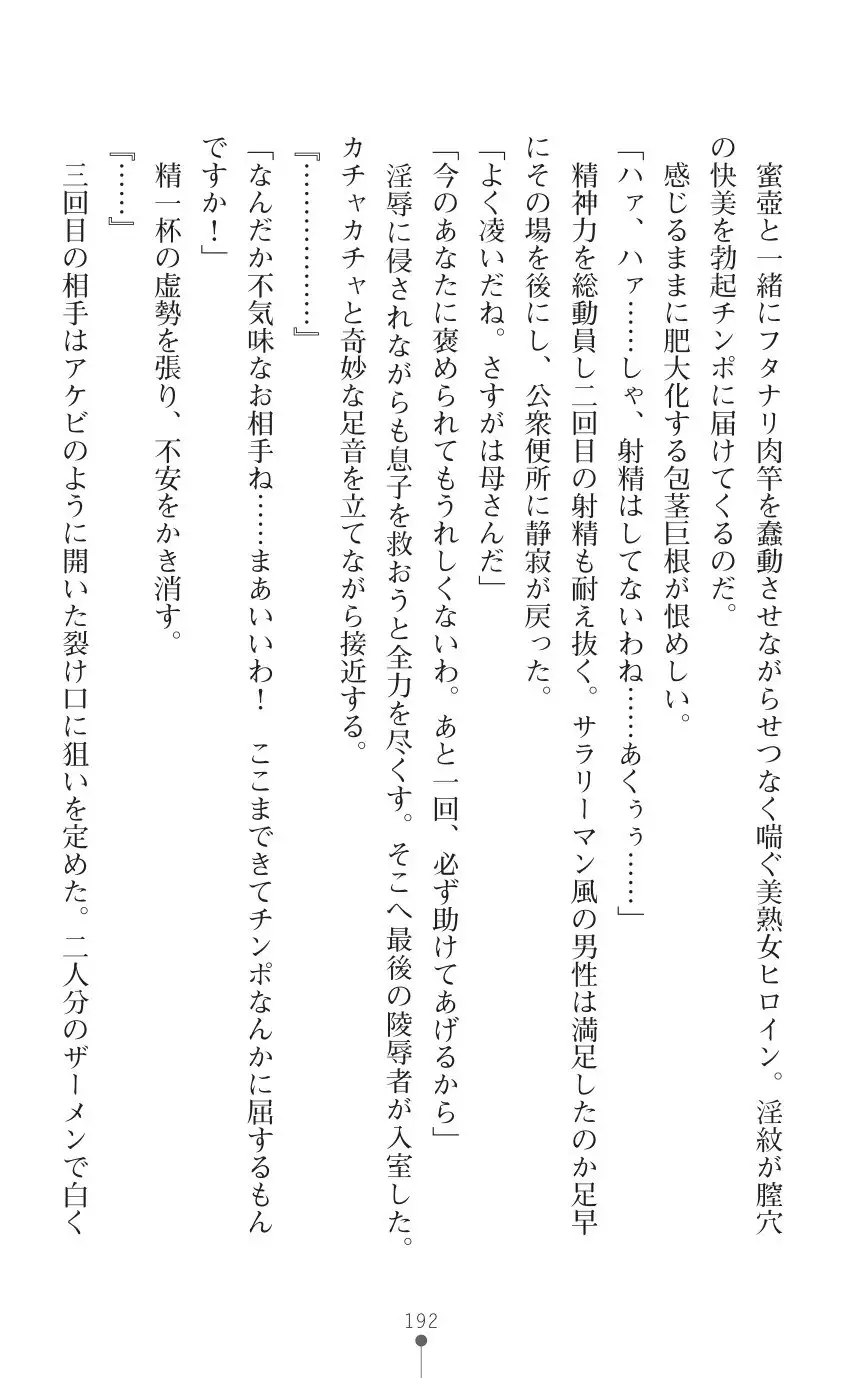 蜜壺と一緒にフタナリ肉竿を蠢動させながらせつなく喘ぐ美熟女ヒロイン。淫紋が膣穴
の快美を勃起チンポに届けてくるのだ。
感じるままに肥大化する包茎巨根が恨めしい。
「ハァ、ハァ……しゃ、射精はしてないわね……あくぅぅ……」
精神力を総動員し二回目の射精も耐え抜く。サラリーマン風の男性は満足したのか足早
にその場を後にし、公衆便所に静寂が戻った。
「よく凌いだね。さすがは母さんだ」
「今のあなたに褒められてもうれしくないわ。あと一回、必ず助けてあげるから」
淫辱に侵されながらも息子を救おうと全力を尽くす。そこへ最後の陵辱者が入室した。
カチャカチャと奇妙な足音を立てながら接近する。
『………………』
「なんだか不気味なお相手ね……まあいいわ！　ここまできてチンポなんかに屈するもん
ですか！」
精一杯の虚勢を張り、不安をかき消す。
『……』
三回目の相手はアケビのように開いた裂け口に狙いを定めた。二人分のザーメンで白く
192